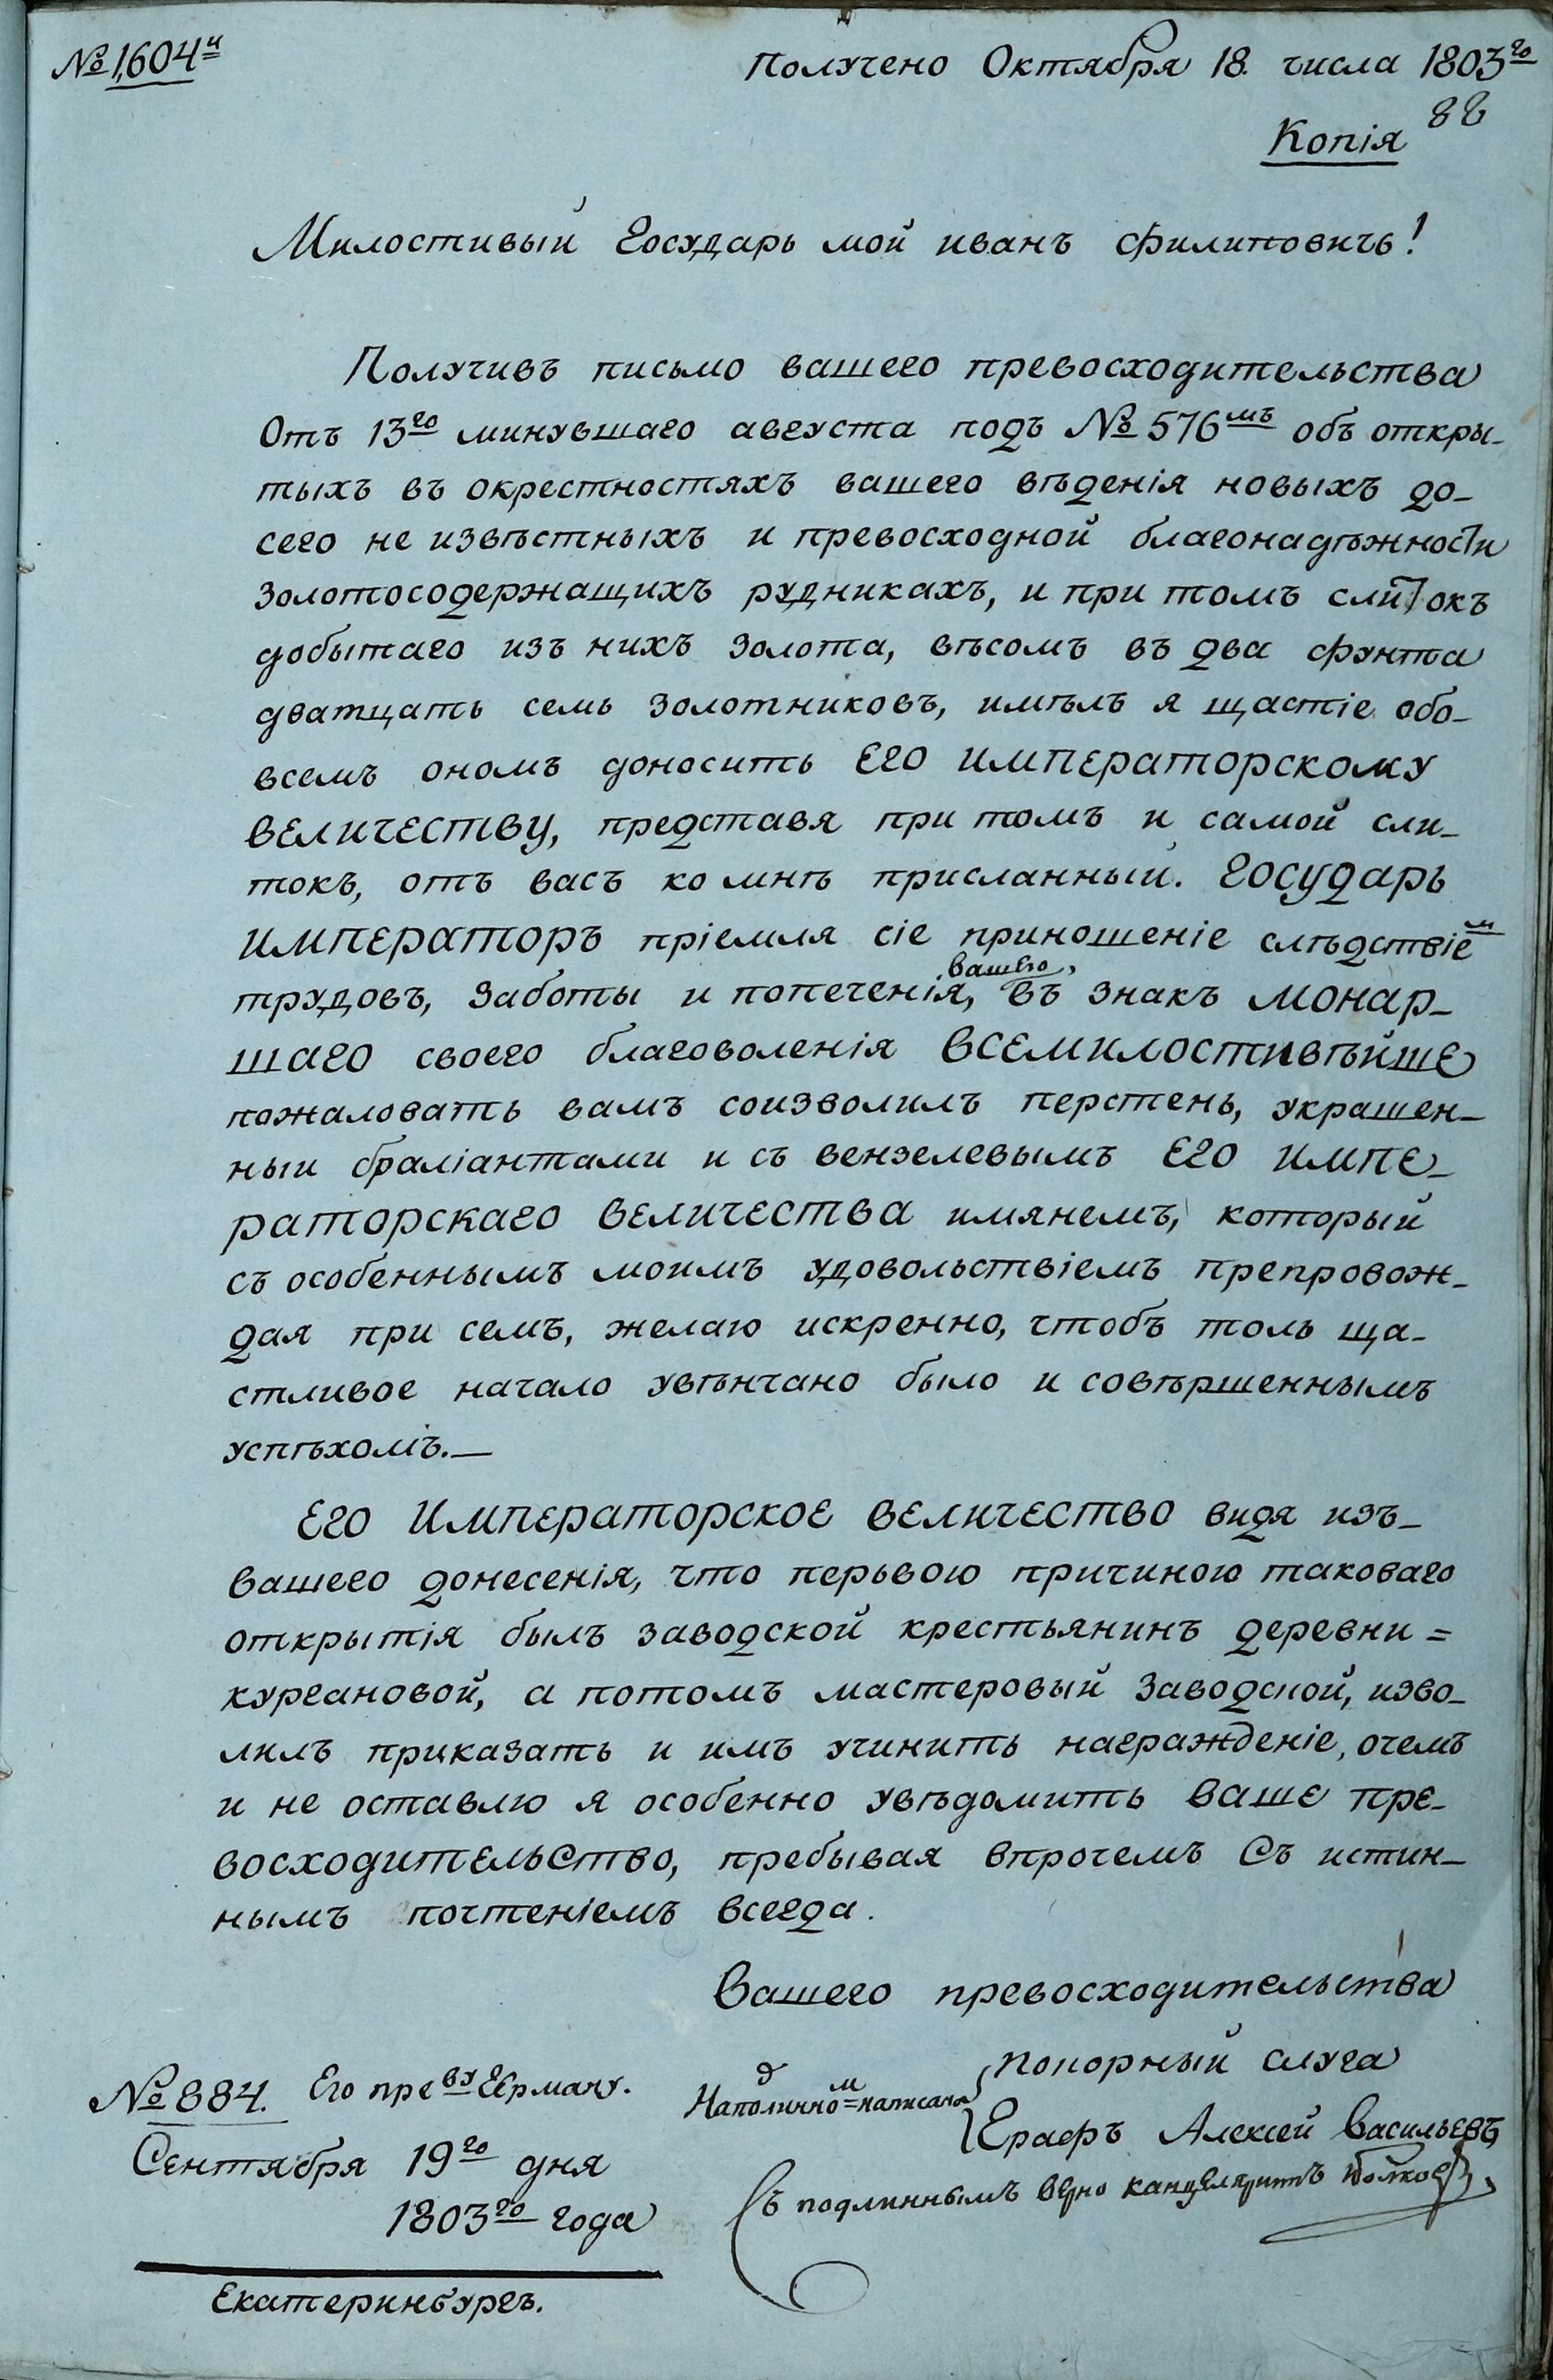 № 1,604й
Получено Октября 18. числа 1803го
88
Копія
Милостивый Государь мой иванъ филиповичъ!
Получивъ письмо вашего превосходительства
отъ 13го минувшаго августа подъ № 576мъ объ откры-
тыхъ въ окрестностяхъ вашего вѣденія новыхъ до-
сего не извѣстныхъ и превосходной благонадѣжности
золотосодержащихъ рудникахъ, и при томъ слитокъ
добытаго изъ нихъ золота, вѣсомъ въ два фунта
дватцать семь золотниковъ, имѣлъ я щастіе обо-
всемъ ономъ доносить Его императорскому
величеству, представя при томъ и самой сли-
токъ, отъ васъ ко мнѣ присланный. Государь
императоръ пріемля сіе приношеніе слѣдствіем
трудовъ, заботы и попеченія, вашего, въ знакъ монар-
шаго своего благоволенія всемилостивѣйше
пожаловать вамъ соизволилъ перстень, украшен-
ный браліантами и съ вензелевымъ Его импе-
раторскаго величества имянемъ, который
съ особеннымъ моимъ удовольствіемъ препровож-
дая при семъ, желаю искренно, чтобъ толь ща-
стливое начало увѣнчано было и совѣршеннымъ
успѣхомъ.—
Его Императорское величество видя изъ-
вашего донесенія, что перьвою причиною таковаго
открытія былъ заводской крестьянинъ деревни =
кургановой, а потомъ мастеровый заводской, изво-
лилъ приказать и имъ учинить награжденіе, очемъ
и не оставлю я особенно увѣдомить ваше пре-
восходительство, пребывая впрочемъ Съ истин-
нымъ почтеніемъ всегда.
Вашего превосходительства
покорный слуга
№ 884. Его преву Герману.
На подлинномъ написано
Графъ Алексей Васильевъ
Сентября 19го дня
1803го года
Съ подлиннымъ верно канцеляристъ
Екатеринбургъ.